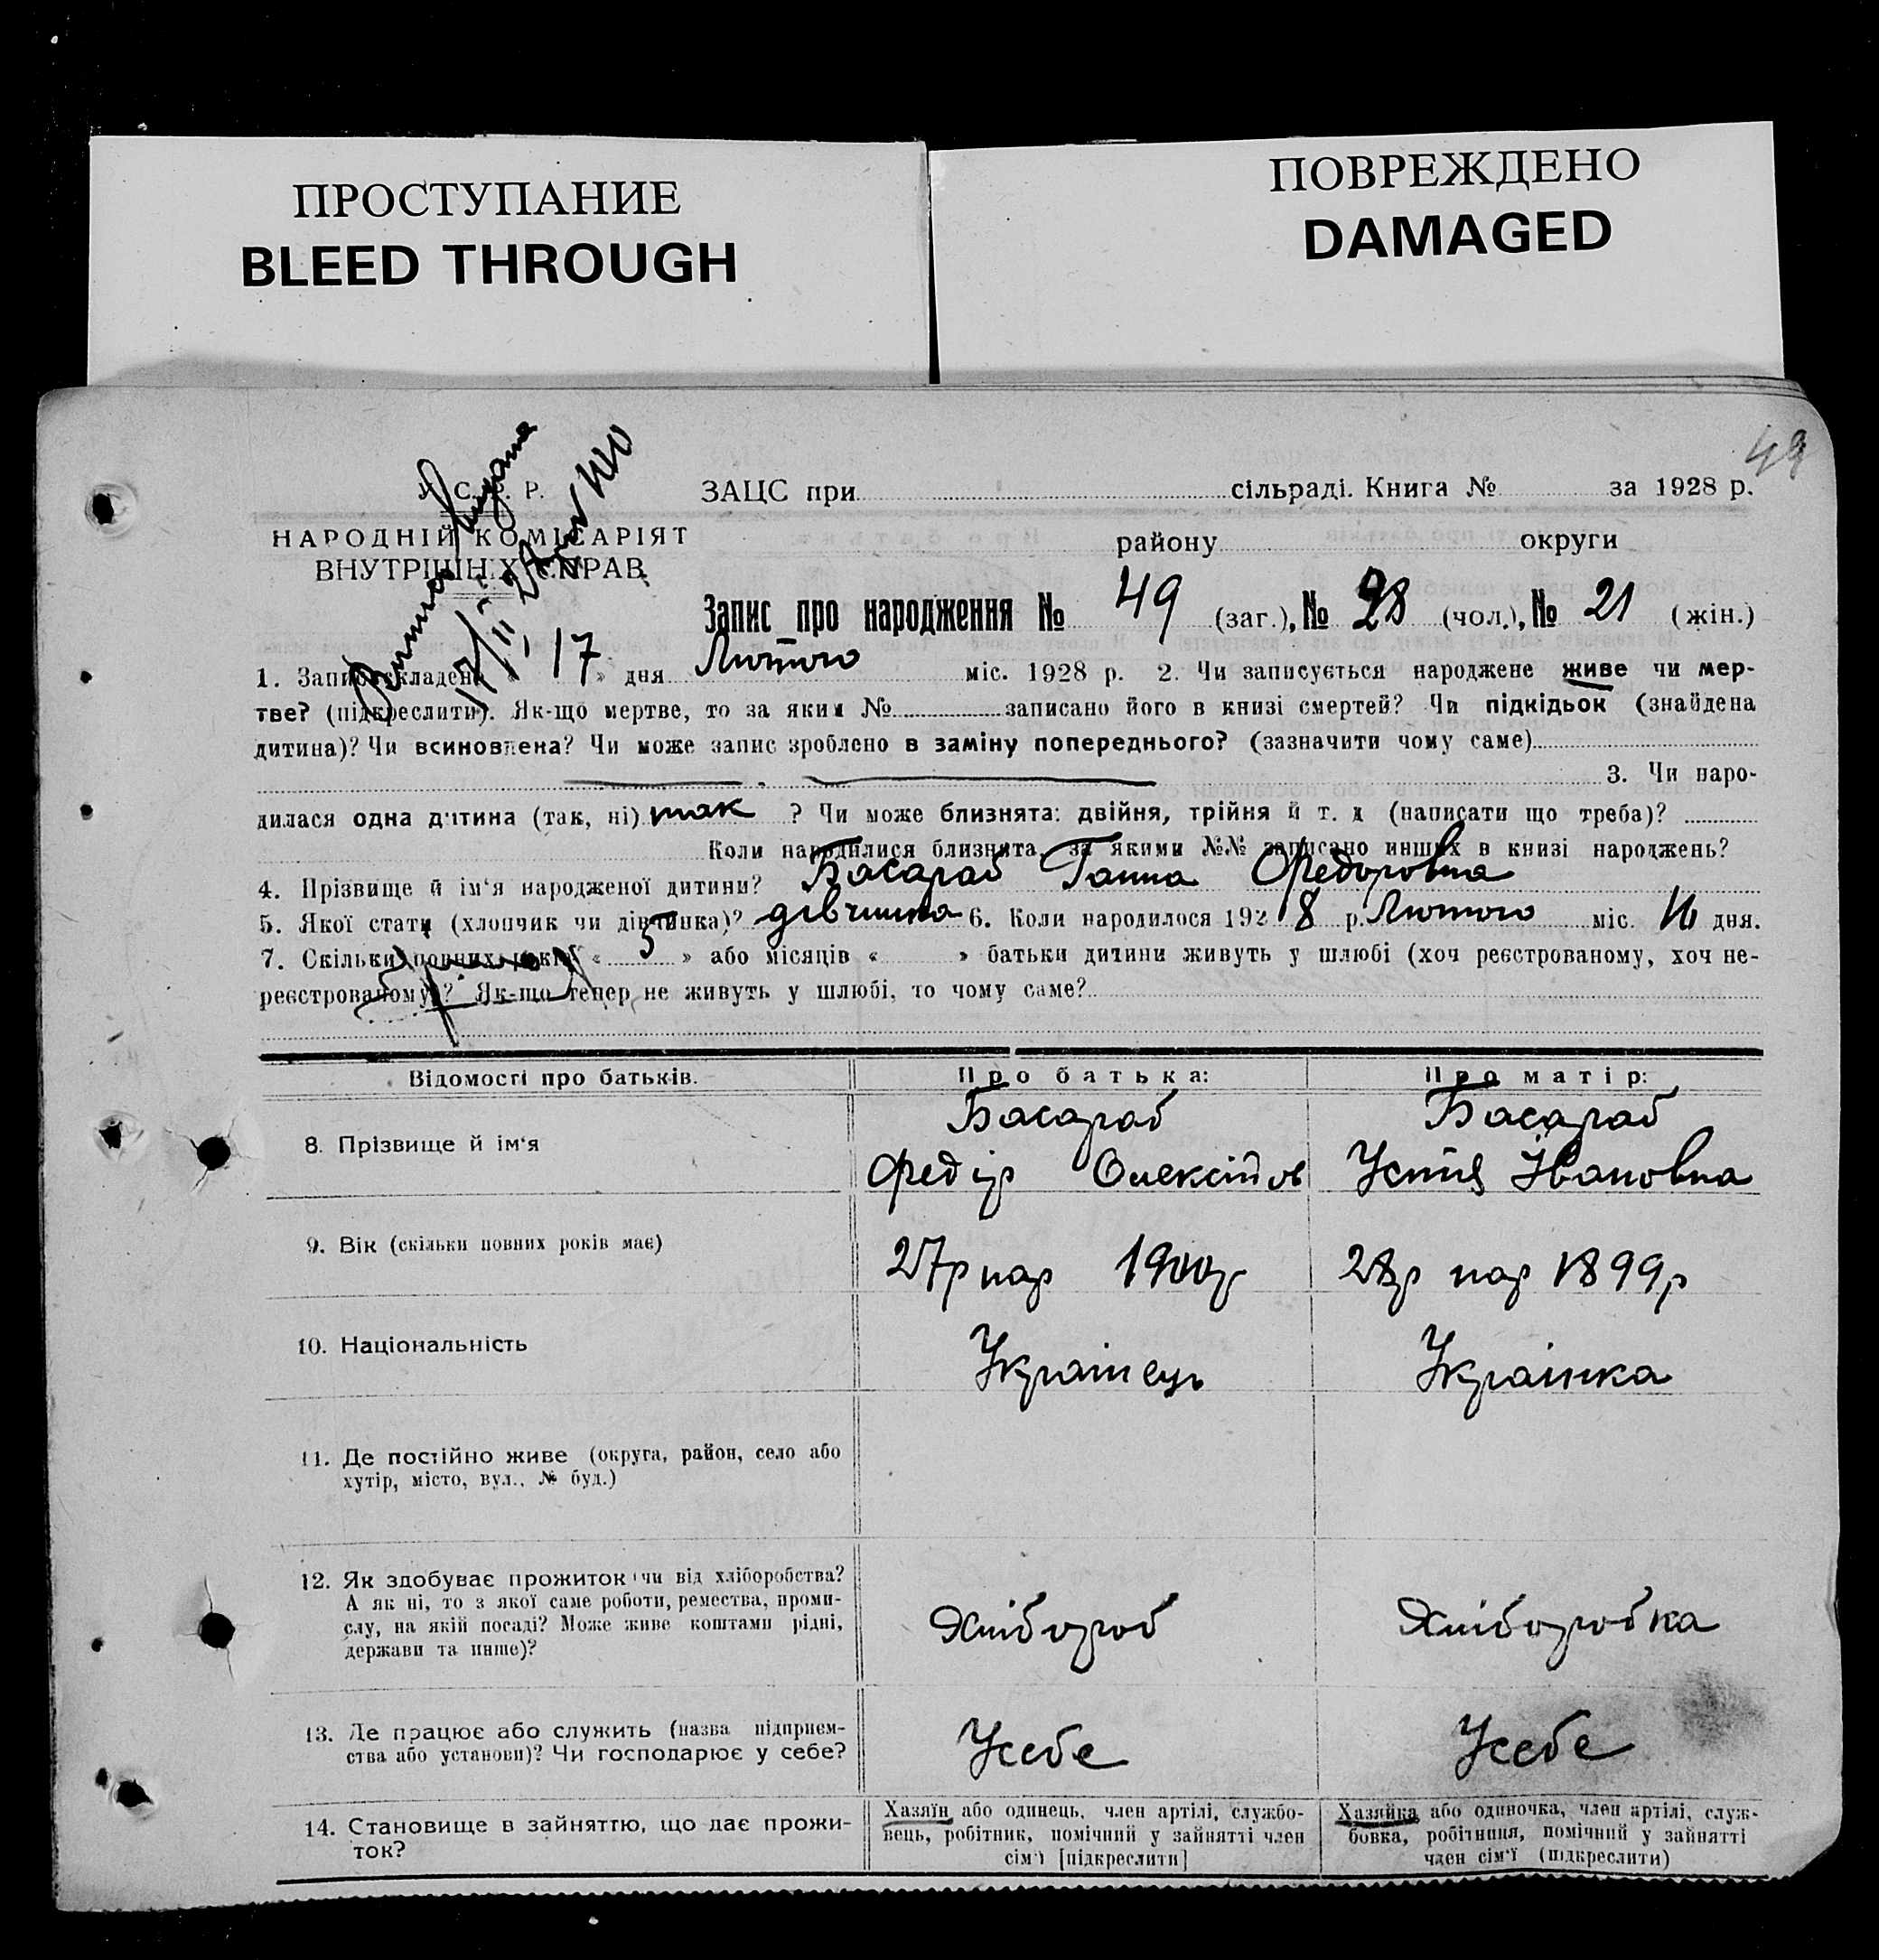 ПРОСТУПАНИЕ
BLEED THROUGH
ПОВРЕЖДЕНО
DAMAGED
49
У. С. Р. Р.
НАРОДНІЙ КОМІСАРІЯТ
ВНУТРІШНІХ СПРАВ
ЗАЦС при сільраді. Книга № за 1928 р.
району округи
Запис про народження № 49 (заг.), № 28 (чол.), № 21 (жін.)
1. Запис складено « 17 » дня Лютого міс. 1928 р. 2. Чи записується народжене живе чи мер-
тве? (підкреслити). Як-що мертве, то за яким № записано його в книзі смертей? Чи підкідьок (знайдена
дитина)? Чи всиновлена? Чи може запис зроблено в заміну попереднього? (зазначити чому саме)
3. Чи наро-
дилася одна дитина (так, ні) так ? Чи може близнята: двійня, трійня й т. д (написати що треба)?
Коли народилися близнята, за якими №№ записано инших в книзі народжень?
4. Прізвище й ім'я народженої дитини? Басараб Ганна Федоровна
5. Якої статі (хлопчик чи дівчинка)? дівчинка 6. Коли народилося 1928 р. Лютого міс. 16 дня.
7. Скільки повних років « 5 » або місяців « » батьки дитини живуть у шлюбі (хоч реєстрованому, хоч не-
реєстрованому)? Як-що тепер не живуть у шлюбі, то чому саме?
Відомості про батьків. Про батька: Про матір:
8. Прізвище й ім'я
Басараб
Федір Олексійов
Басараб
Устія Івановна
9. Вік (скільки повних років має) 27р нар 1900р 28р нар 1899р
10. Національність Українець Українка
11. Де постійно живе (округа, район, село або
хутір, місто, вул., № буд.)
12. Як здобуває прожиток чи від хліборобства?
А як ні, то з якої саме роботи, ремества, проми-
слу, на якій посаді? Може живе коштами рідні,
держави та инше)?
Хлібороб Хліборобка
13. Де працює або служить (назва підприєм-
ства або установи)? Чи господарює у себе?
Усебе Усебе
14. Становище в зайняттю, що дає прожи-
ток?
Хазяїн або одинець, член артілі, службо-
вець, робітник, помічний у зайнятті член
сім'ї [підкреслити]
Хазяйка або одиночка, член артілі, служ-
бовка, робітниця, помічний у зайнятті
член сім'ї (підкреслити)